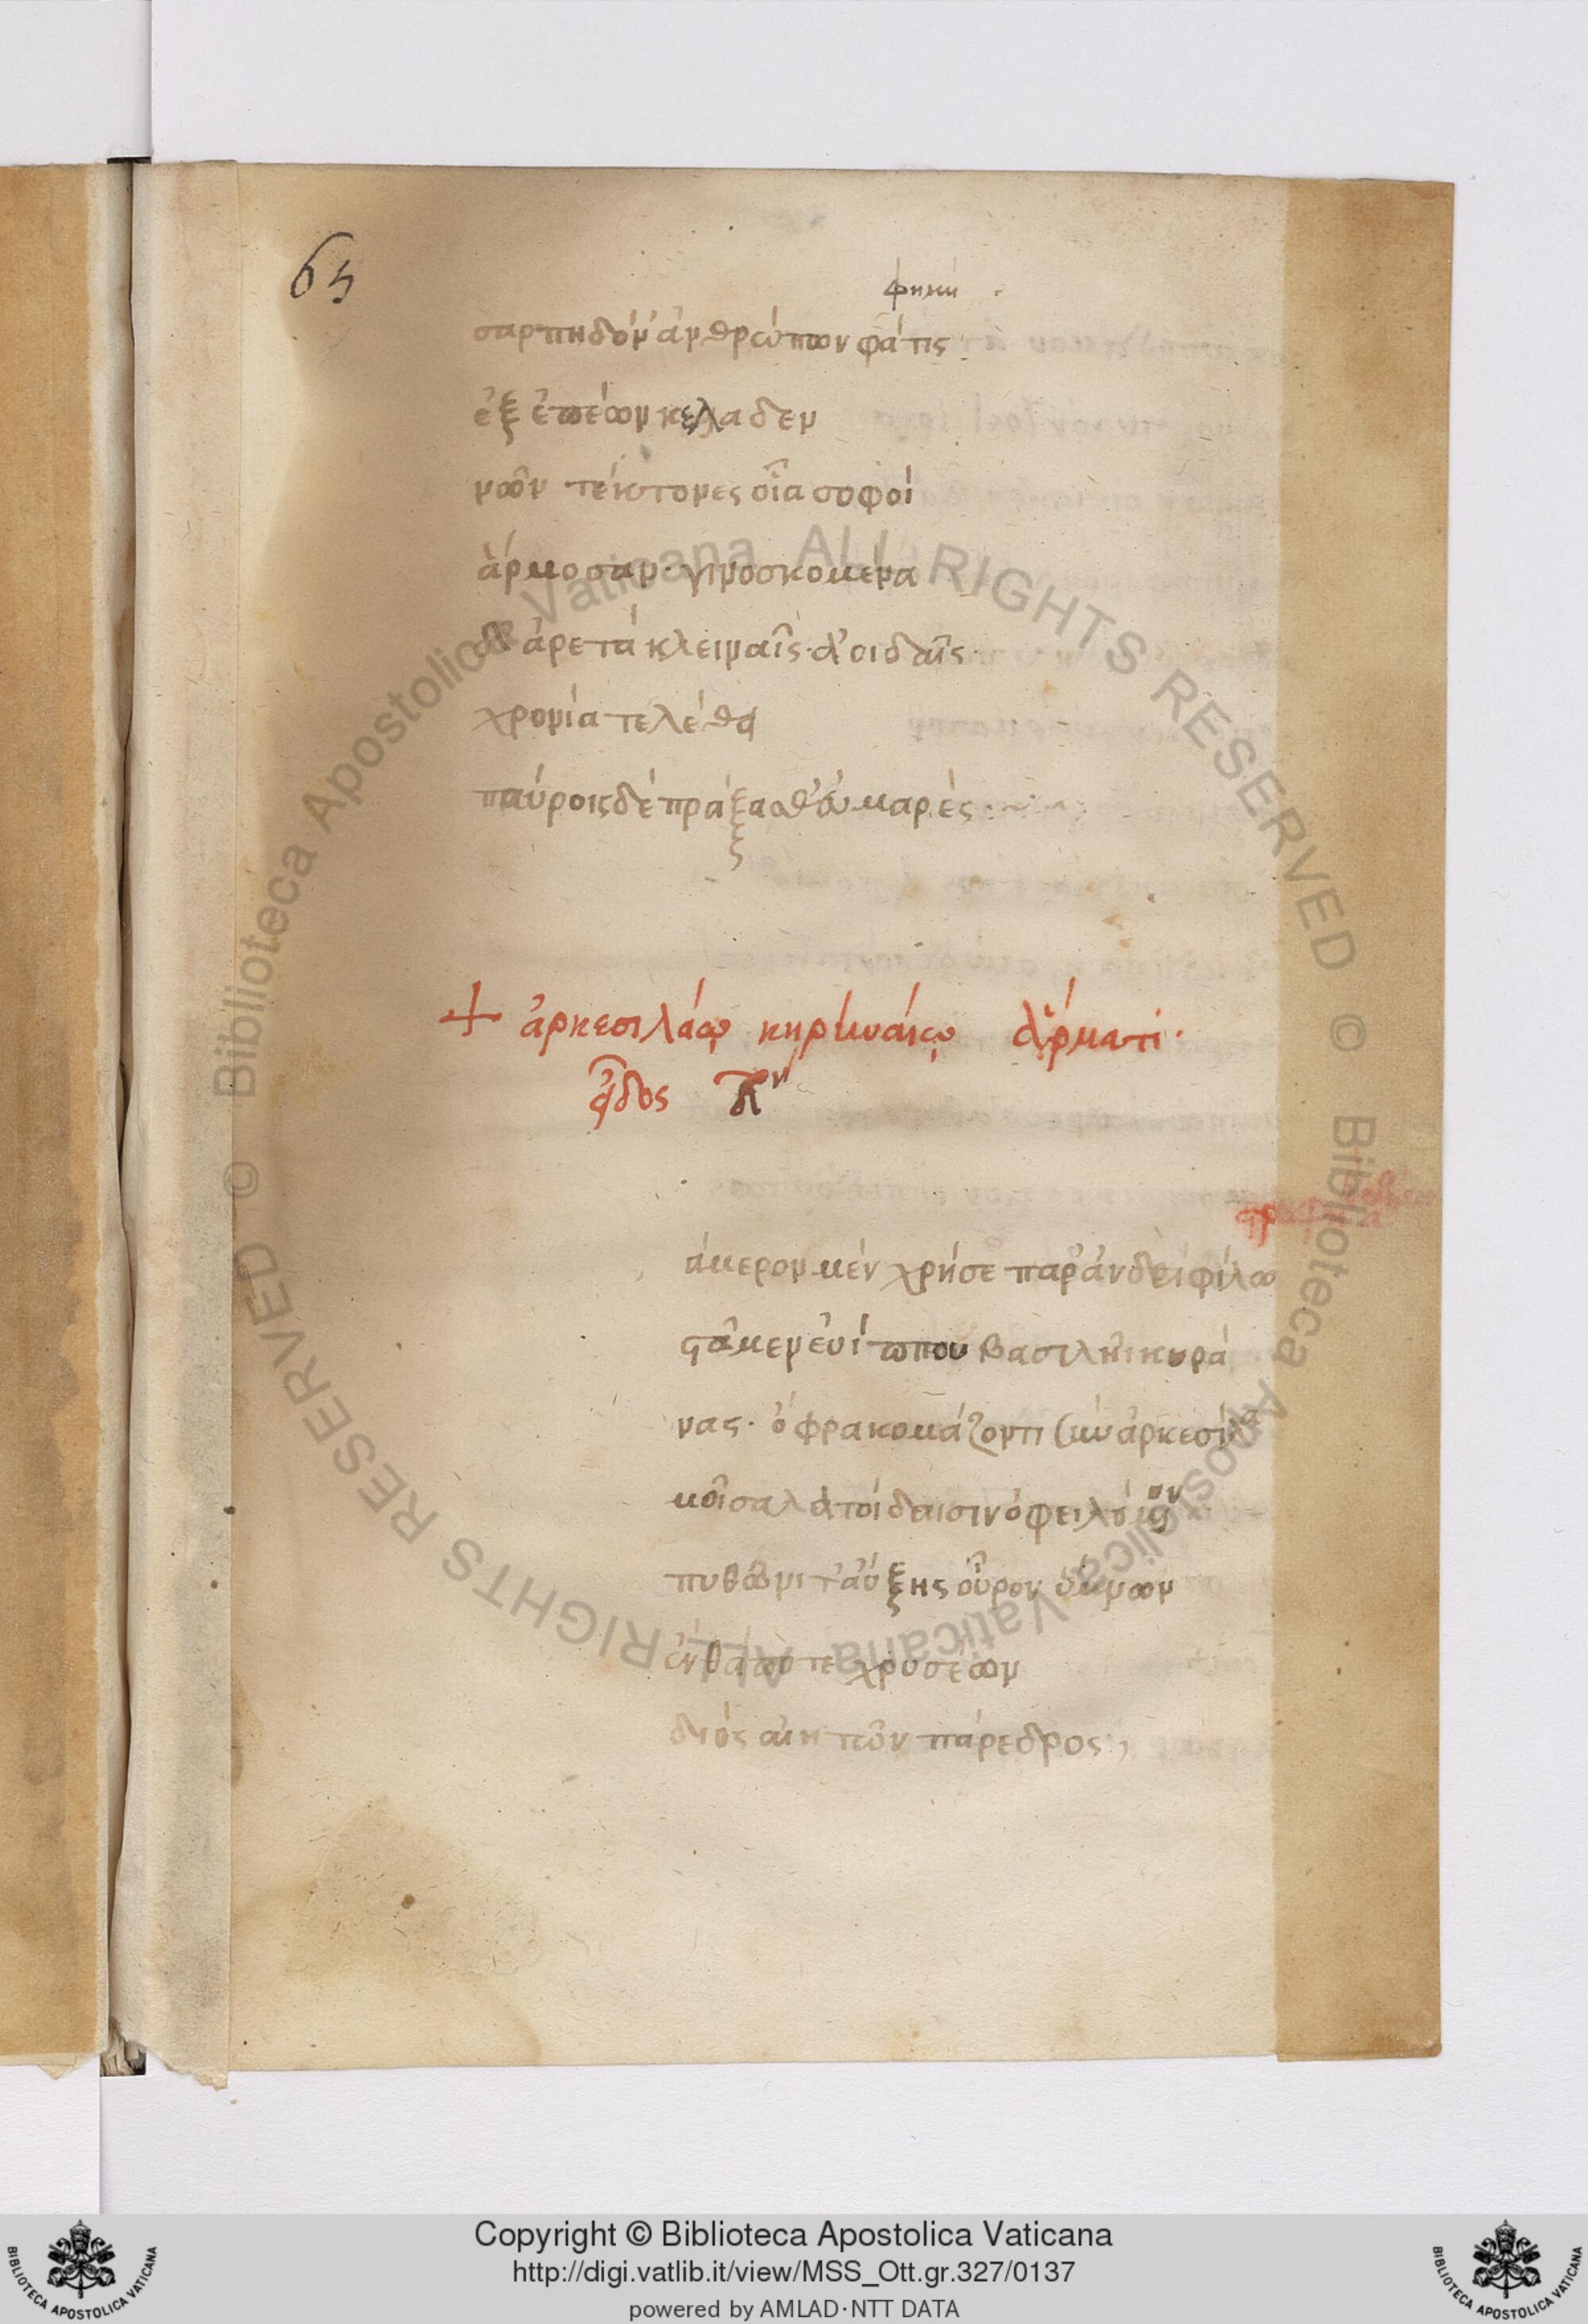 65
φήμη
σαρπηδόν ἀνθρώπων φάτις
ἐξ ἐπέων κελαδεν
νῶν τέκτονες οἷα σοφοί
ἅρμοσαν· γινοσκομένα
δ' ἀρετὰ κλειναῖς· ἀοιδαῖς·
χρονία τελέθει
παύροις δὲ πράξασθ' εὐμαρές:
+ ἀρκεσιλάῳ κηρυναίῳ ἅρματι·
εἶδος δον
άμερον μὲν χρήσε παρ' ἀνδεὶ φίλω
στᾶμεν εὐίππου βασιλῆι κυρά
νας· ὄφρα κομάζοντι σὺν ἀρκεσίλα
μοῖσα λατοίδαισιν ὀφειλόμενον
πυθῶνι τ' αὔξης οὖρον ὕμνων
ἔνθα ποτε χρυσέων
διὸς αἰητῶν πάρεδρος,
Copyright © Biblioteca Apostolica Vaticana
http://digi.vatlib.it/view/MSS_Ott.gr.327/0137
powered by AMLAD·NTT DATA
BIBLIOTECA APOSTOLICA VATICANA
BIBLIOTECA APOSTOLICA VATICANA
© Biblioteca Apostolica Vaticana ALL RIGHTS RESERVED
© Biblioteca Apostolica Vaticana ALL RIGHTS RESERVED